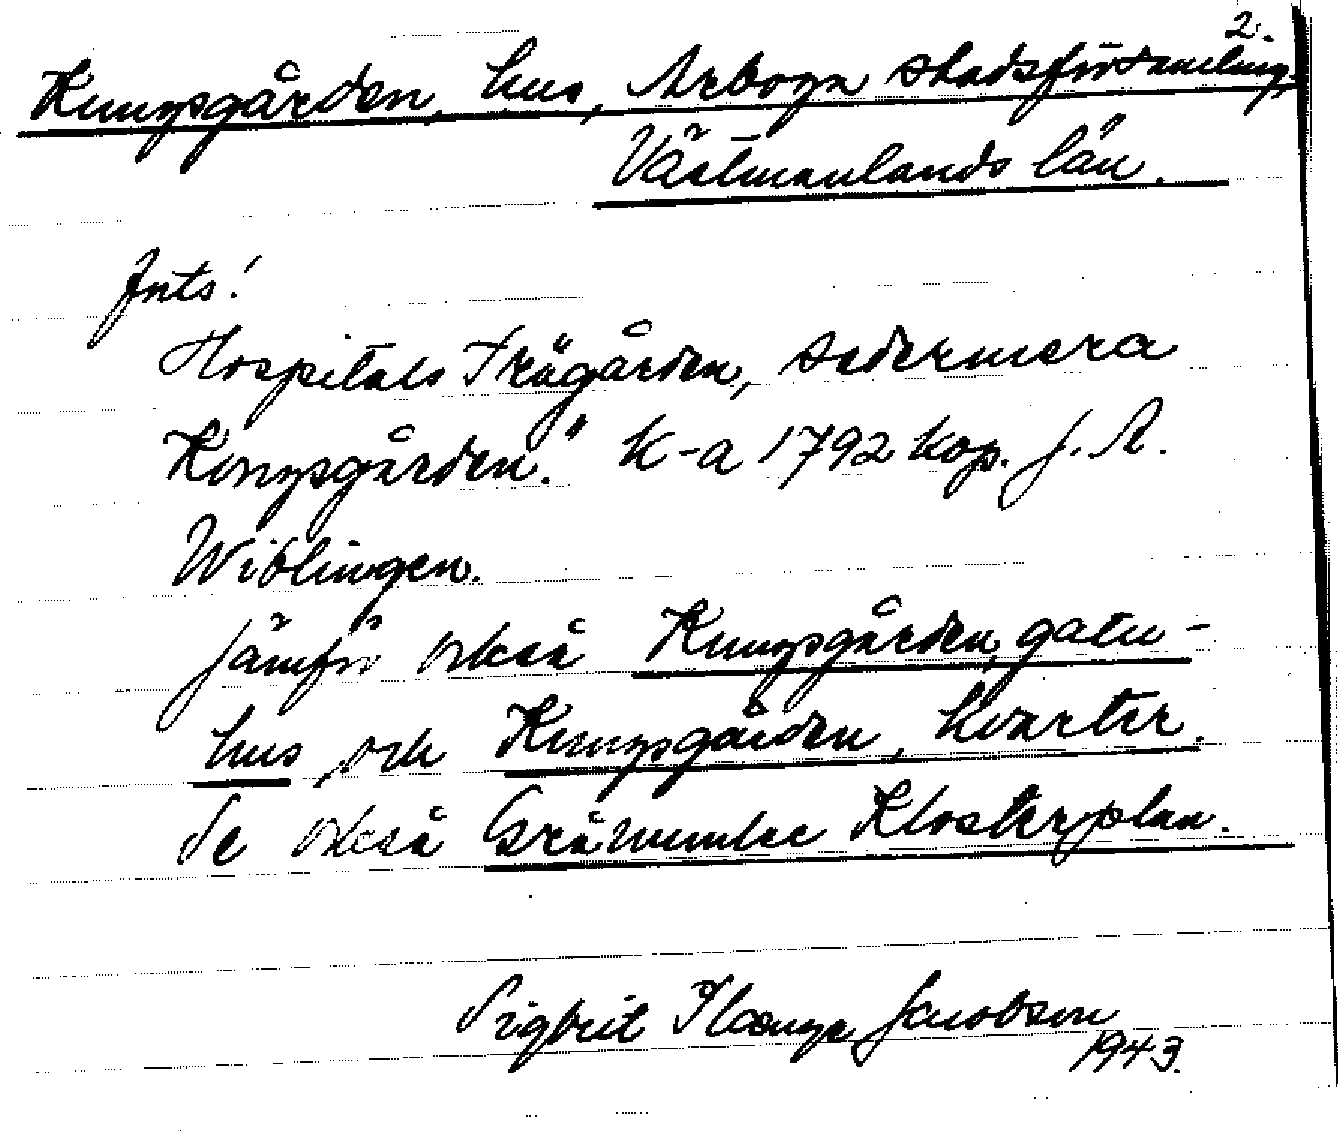 2.
Kungsgården, hus, Arboga stadsförsamling,
Västmanlands län.
Jnts!
Hospitals Trägården, sedermera
Kongsgården." K-a 1792 kop. f. A.
Wiblingen.
Jämför också Kungsgården, gatu-
hus, och Kungsgården, kvarter.
Se också Gråmunke Klosterplan.
Sigbrit Plænge Jacobson
1943.